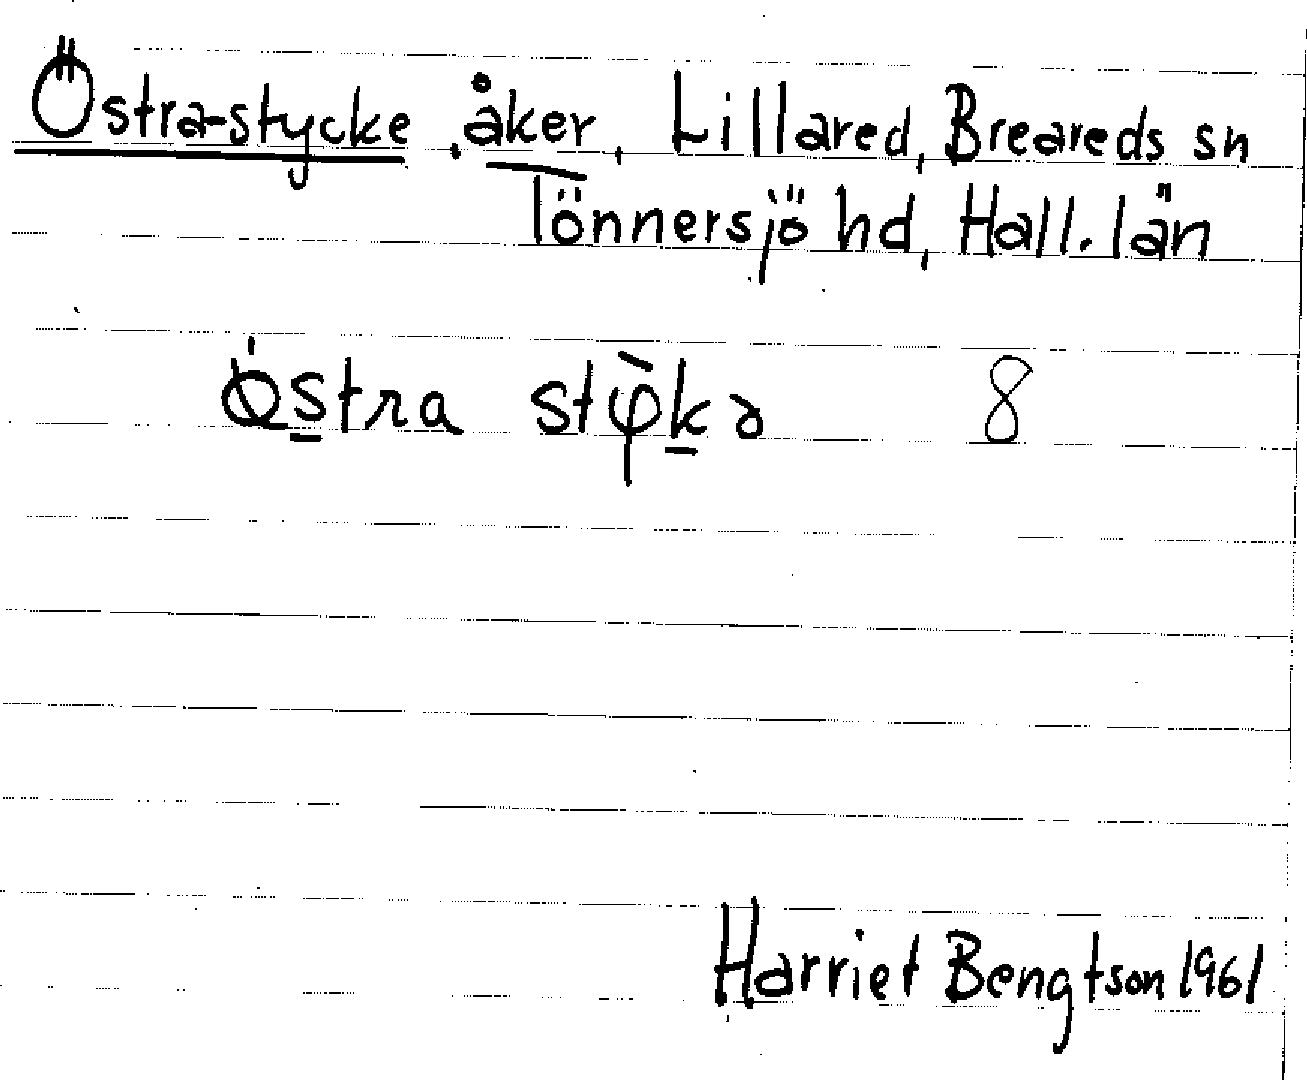 Östra-stycke, åker, Lillared, Breareds sn
Tönnersjö hd, Hall. län
ǿstra stφ̀kə 8
Harriet Bengtson 1961